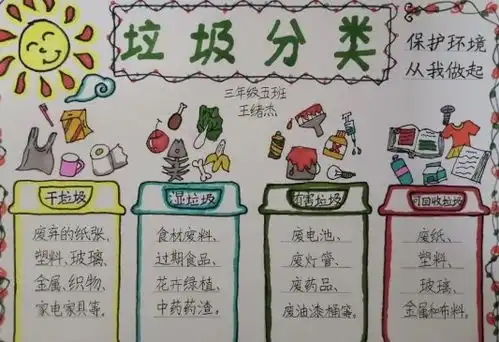 垃圾分类
保护环境
从我做起
三年级五班
王绪杰
干垃圾
废弃的纸张、
塑料、玻璃、
金属、织物、
家电家具等。
湿垃圾
食材废料、
过期食品、
花卉绿植、
中药药渣。
有害垃圾
废电池、
废灯管、
废药品、
废油漆桶等。
可回收垃圾
废纸、
塑料、
玻璃、
金属和布料。